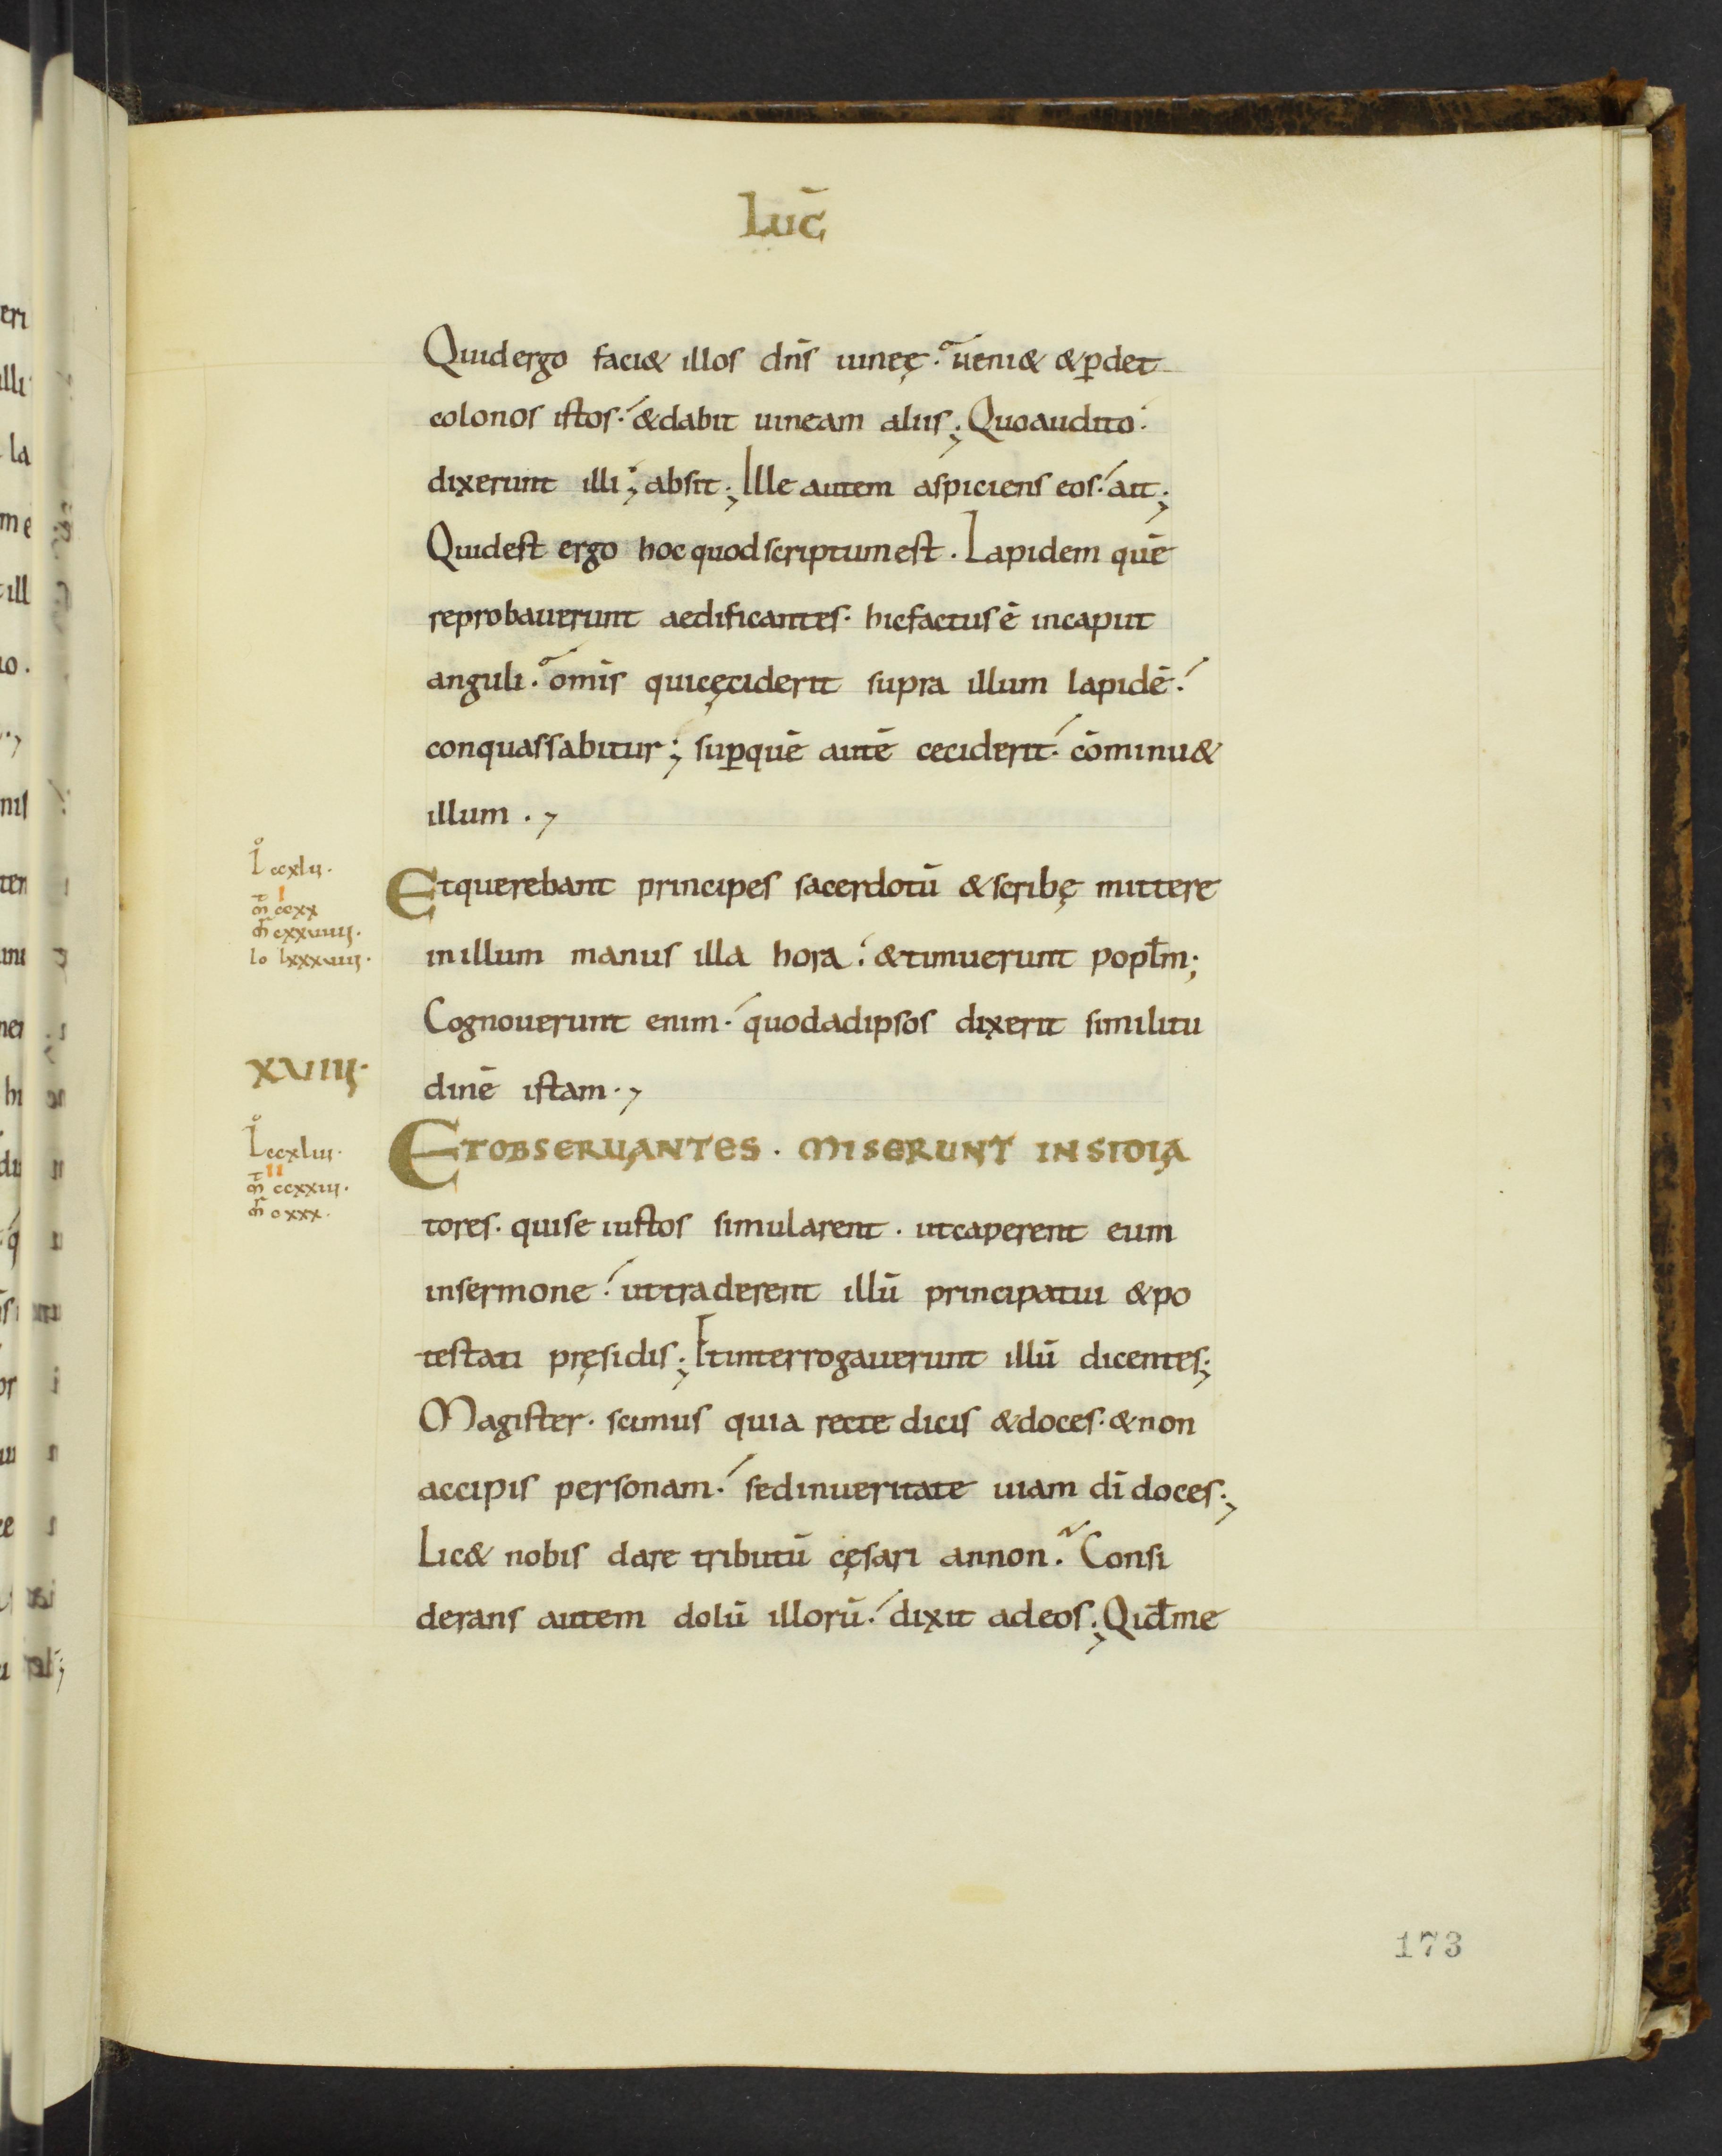 Luc̄
Quid ergo faci& illos dn̄s uineę. ueni& & ꝑdet
colonos istos. & dabit uineam aliis; Quo audito.
dixerunt illi; absit; Ille autem aspiciens eos. ait;
Quid est ergo hoc quod scriptum est. Lapidem quē
reprobauerunt aedificantes. hic factus ē in caput
anguli. om̄is qui cęciderit supra illum lapidē.
conquassabitur; suꝑ quē autē ceciderit. cōminu&
illum.,
L ccxlii.
I
mt̄ ccxx
mr̄ cxxuiiii.
Io lxxxuiiii.
Et querebant principes sacerdotū & scribę mittere
in illum manus illa hora. & timuerunt popłm;
Cognouerunt enim. quod ad ipsos dixerit similitu
dinē istam.,
XVIIII.
L ccxliii.
II
mt̄ ccxxiii.
mr̄ cxxx.
ET OBSERUANTES. MISERUNT INSIDIA
tores. qui se iustos simularent. ut caperent eum
in sermone. ut traderent illū principatui & po
testati pręsidis; Et interrogauerunt illū dicentes;
Magister. scimus quia recte dicis & doces. & non
accipis personam. sed in ueritate uiam dī doces;
Lic& nobis dare tributū cęsari an non. Consi
derans autem dolū illorū. dixit ad eos; Qid me
173